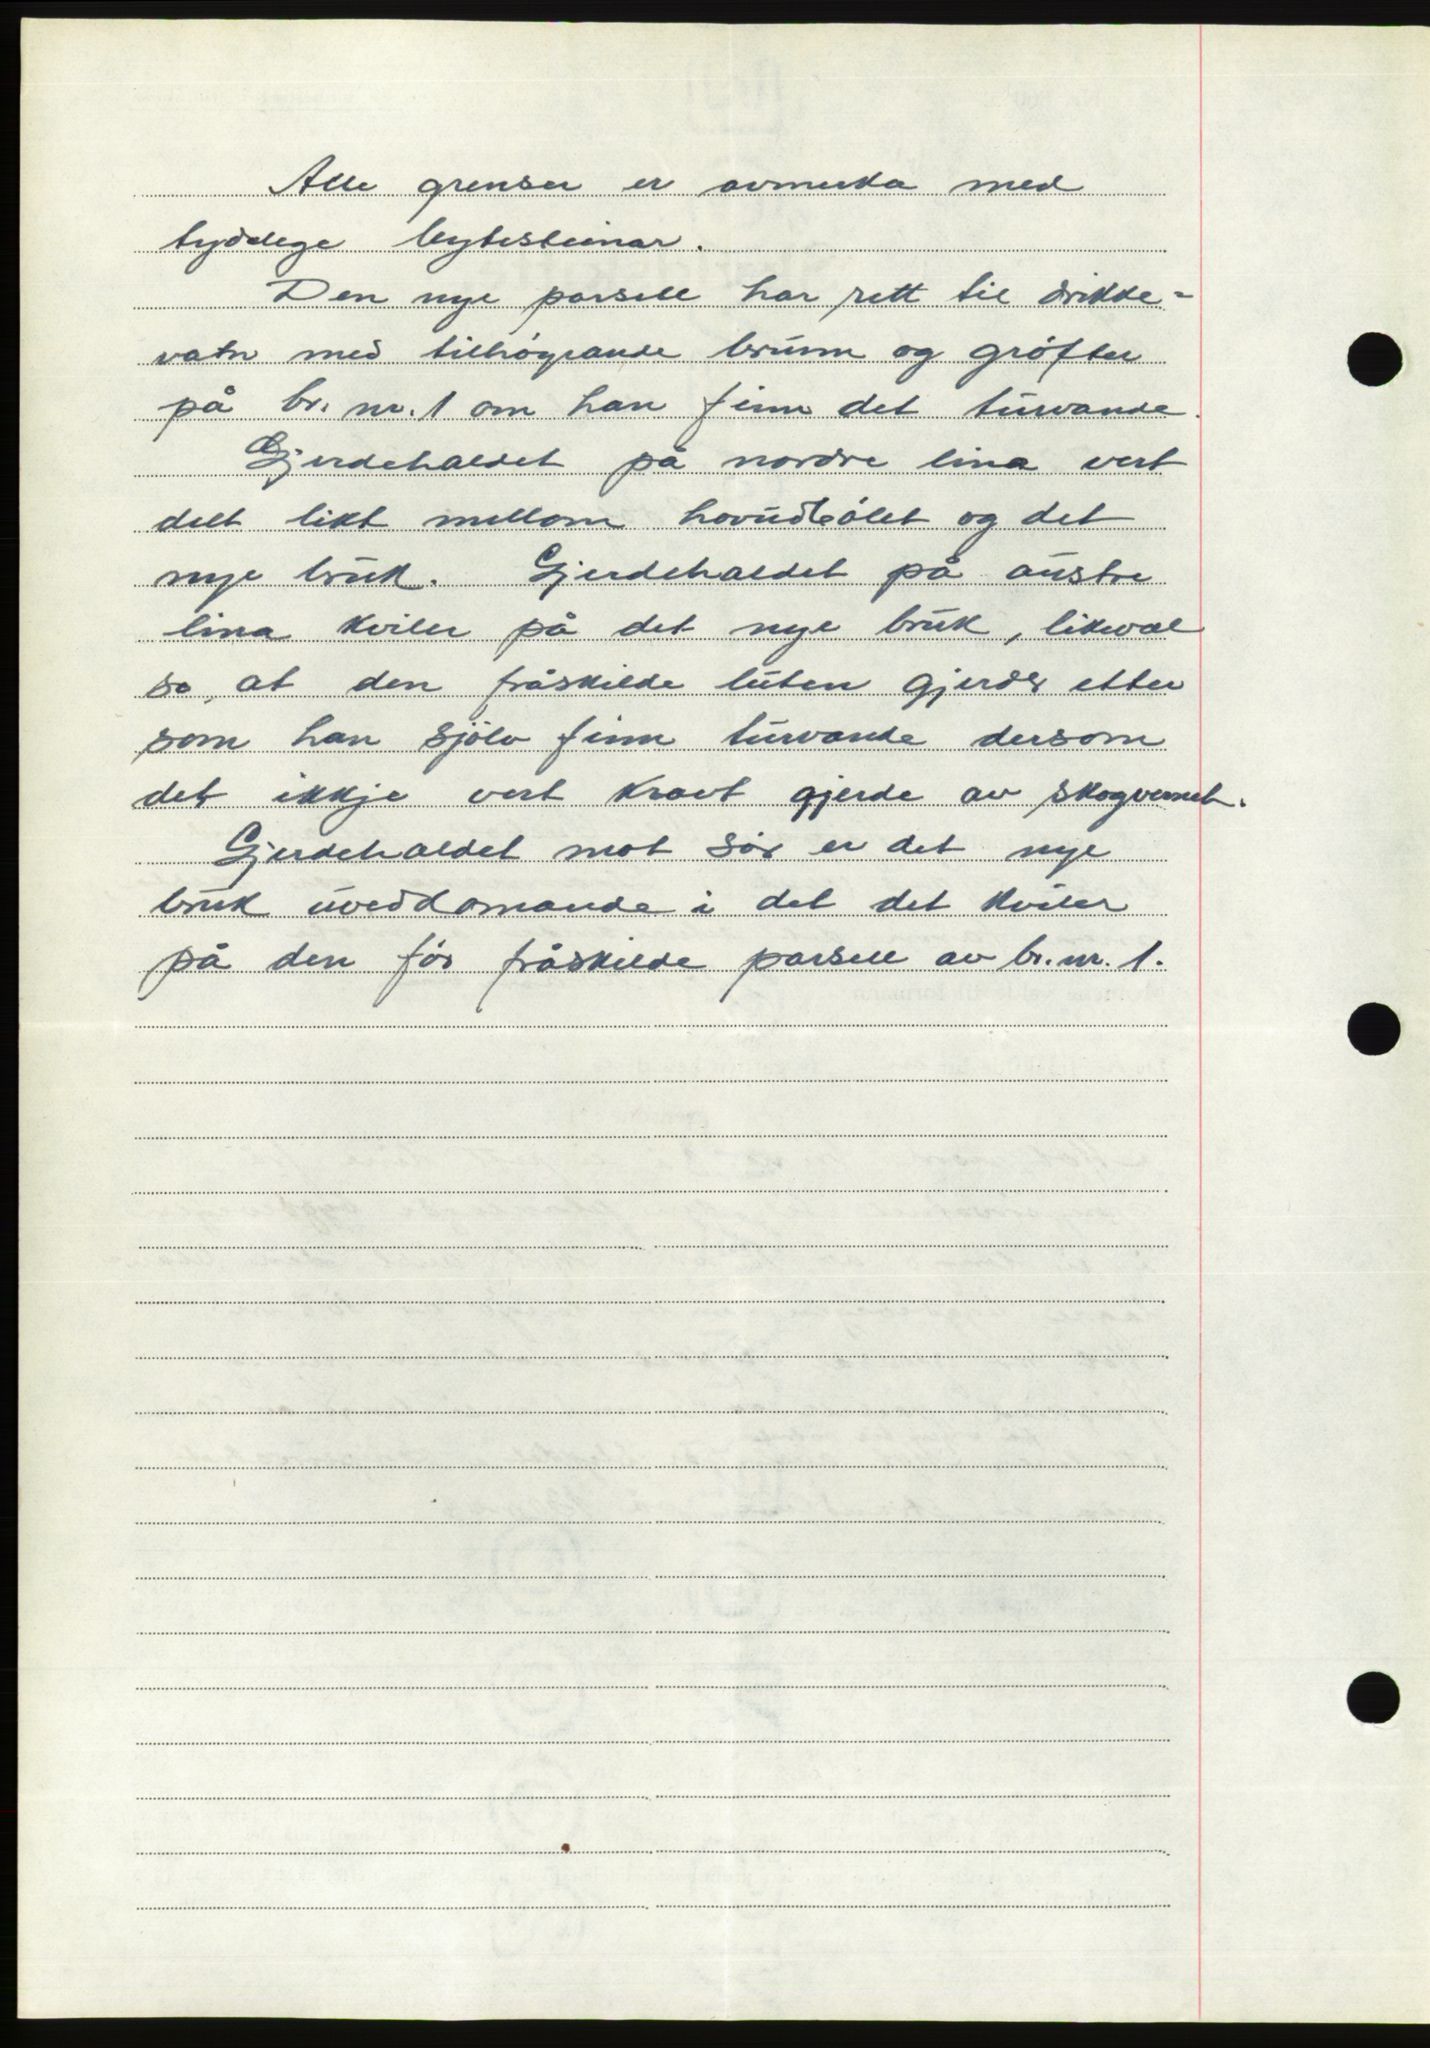 Alle grenser er avmerka med
tydelege bytesteinar.
Den nye parsell har rett til drikke=
vatn med tilhøyrande brunn og grøfter
på br. nr. 1 om han finn det turvande.
Gjerdehaldet på nordre lina vert
delt likt mellom hovudbølet og det
nye bruk. Gjerdehaldet på austre
lina kviler på det nye bruk, likevæl
so, at den fråskilde luten gjerder etter
som han sjølv finn turvande dersom
det ikkje vert kravt gjerde av skogvernet.
Gjerdehaldet mot sør er det nye
bruk uveddomande i det det kviler
på den før fråskilde parsell av br. nr. 1.